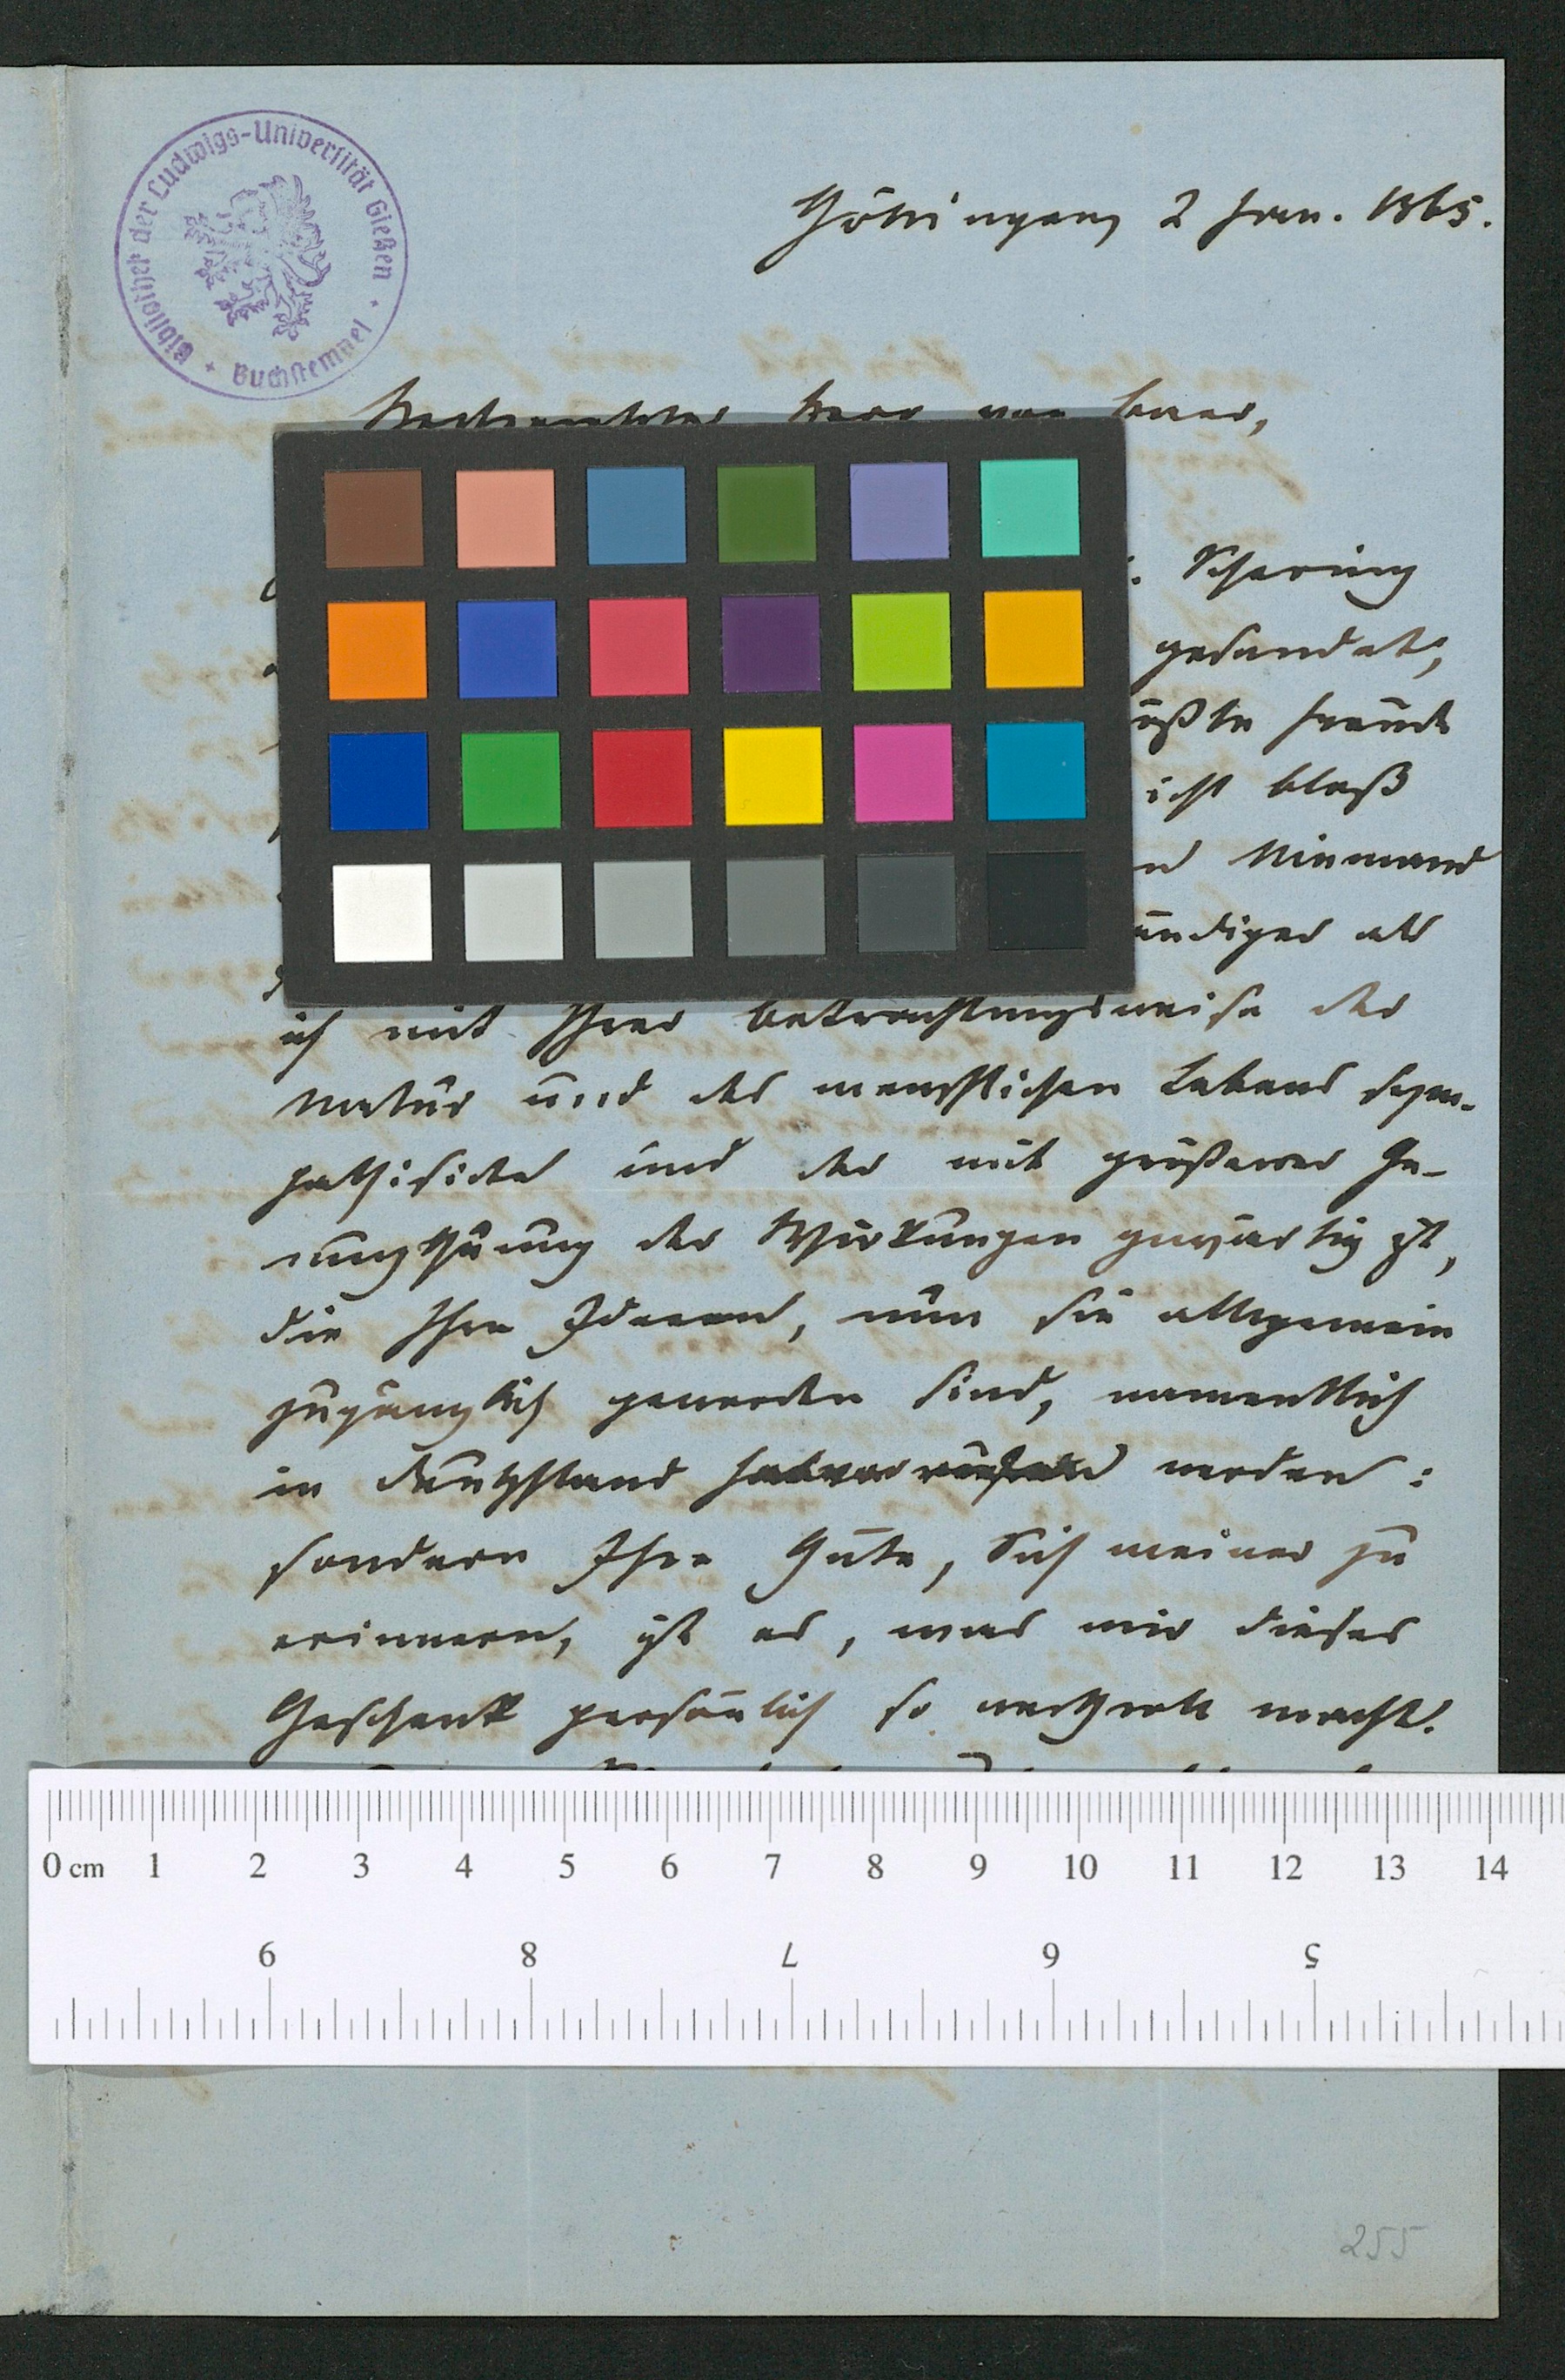 Bibliothek der Ludwigs-Universität Gießen
Buchstempel
Göttingen, 2 Jan. 1865.
Hochverehrter Herr von Baer,
Schering
gesendet,
größte Freude
nicht bloß
Niemand
ständiger als
ich mit Ihrer Betrachtungsweise der
Natur und des menschlichen Lebens sym-
pathisirte und der mit größerer Ge-
nugthuung der Wirkungen gewärtig ist,
die Ihre Ideeen, nun sie allgemein
zugänglich geworden sind, namentlich
in Deutschland hervorrufen werden:
sondern Ihre Güte, Sich meiner zu
erinnern, ist es, was mir dieses
Geschenk persönlich so werthvoll macht.
0 cm 1 2 3 4 5 6 7 8 9 10 11 12 13 14
9 8 7 6 5
255